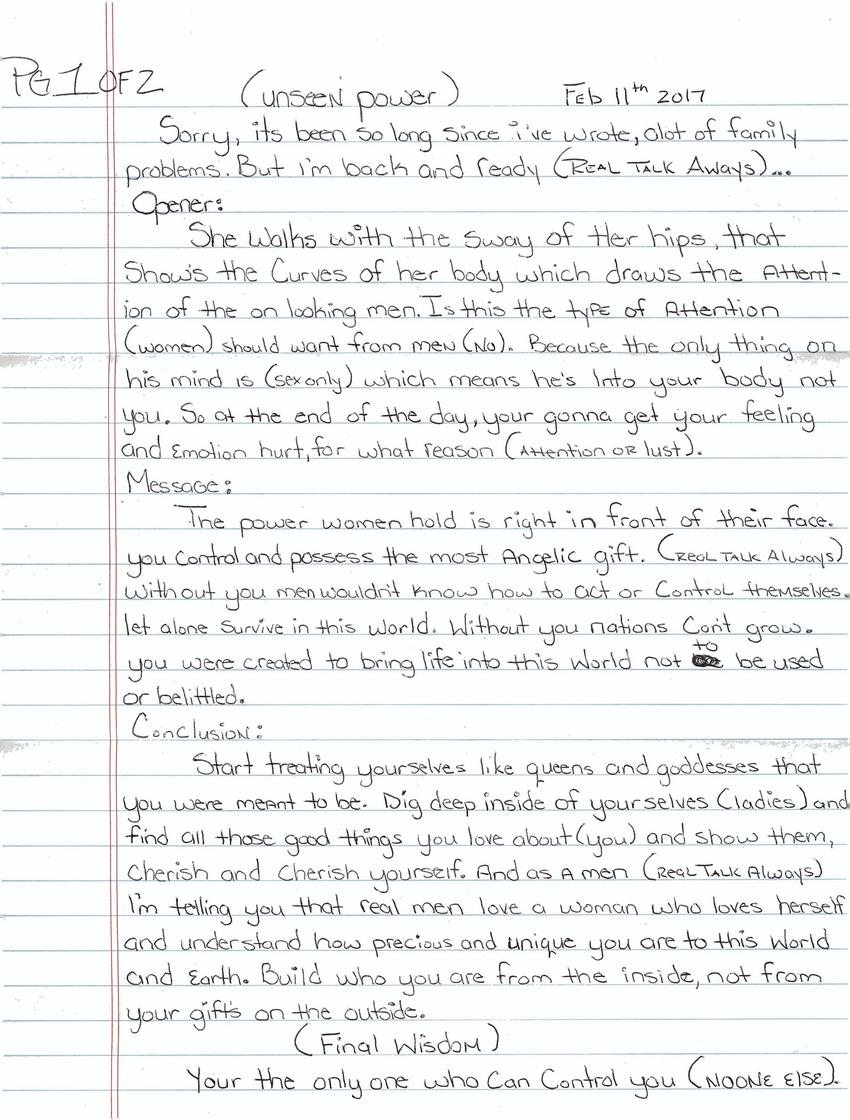 PG 1 OF 2
(unseen power) Feb 11th 2017
Sorry, its been so long since i've wrote, alot of family
problems. But i'm back and ready (REAL TALK Aways)...
Opener:
She walks with the sway of Her hips, that
Show's the Curves of her body which draws the Attent-
ion of the on looking men. Is this the type of Attention
(women) should want from men (No). Because the only thing on
his mind is (sex only) which means he's Into your body not
you. So at the end of the day, your gonna get your feeling
and Emotion hurt, for what reason (Attention OR lust).
Message:
The power women hold is right in front of their face.
you control and possess the most Angelic gift. (Real TALK Always)
Without you men wouldn't know how to act or Control themselves.
let alone survive in this world. Without you nations Can't grow.
you were created to bring life into this World not to be used
or belittled.
Conclusion:
Start treating yourselves like queens and goddesses that
you were meant to be. Dig deep inside of yourselves (ladies) and
find all those good things you love about (you) and show them,
Cherish and Cherish yourself. And as A men (Real Talk Always)
I'm telling you that real men love a woman who loves herself
and understand how precious and unique you are to this World
and Earth. Build who you are from the inside, not from
your gift's on the outside.
(Final Wisdom)
Your the only one who Can Control you (NOONE ELSE).